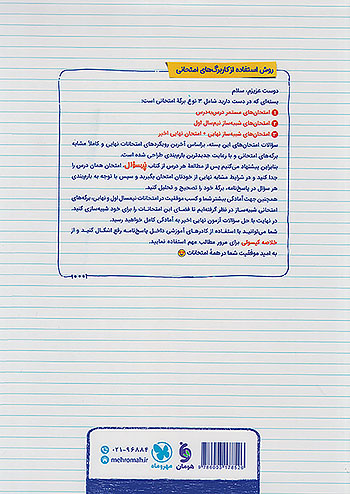 روش استفاده از کاربرگ‌های امتحانی
دوست عزیزم، سلام
بسته‌ای که در دست دارید شامل ۳ نوع برگهٔ امتحانی است:
۱ امتحان‌های مستمر درس‌به‌درس
۲ امتحان‌های شبیه‌ساز نیم‌سال اول
۳ امتحان‌های شبیه‌ساز نهایی + امتحان نهایی اخیر
سؤالات امتحان‌های این بسته، براساس آخرین رویکردهای امتحانات نهایی و کاملاً مشابه
برگه‌های امتحانی و با رعایت جدیدترین بارم‌بندی طراحی شده است.
بنابراین پیشنهاد می‌کنیم پس از مطالعهٔ هر درس از کتاب پُرسؤال، امتحان همان درس را
جدا کنید و در شرایط مشابه نهایی از خودتان امتحان بگیرید و سپس با توجه به بارم‌بندی
هر سؤال در پاسخ‌نامه، برگهٔ خود را تصحیح و تحلیل کنید.
همچنین جهت آمادگی بیشتر شما و کسب موفقیت در امتحانات نیمسال اول و نهایی، برگه‌های
امتحانی شبیه‌ساز در نظر گرفته‌ایم تا فضای این امتحانات را برای خود شبیه‌سازی کنید.
در نهایت با حل سؤالات آزمون نهایی اخیر به آمادگی کامل خواهید رسید.
شما می‌توانید با استفاده از کادرهای آموزشی داخل پاسخ‌نامه رفع اشکال کنید و از
خلاصه کپسولی برای مرور مطالب مهم استفاده نمایید.
به امید موفقیت شما در همهٔ امتحانات
۰۲۱-۹۶۸۸۴
mehromah.ir
مهروماه
هومان